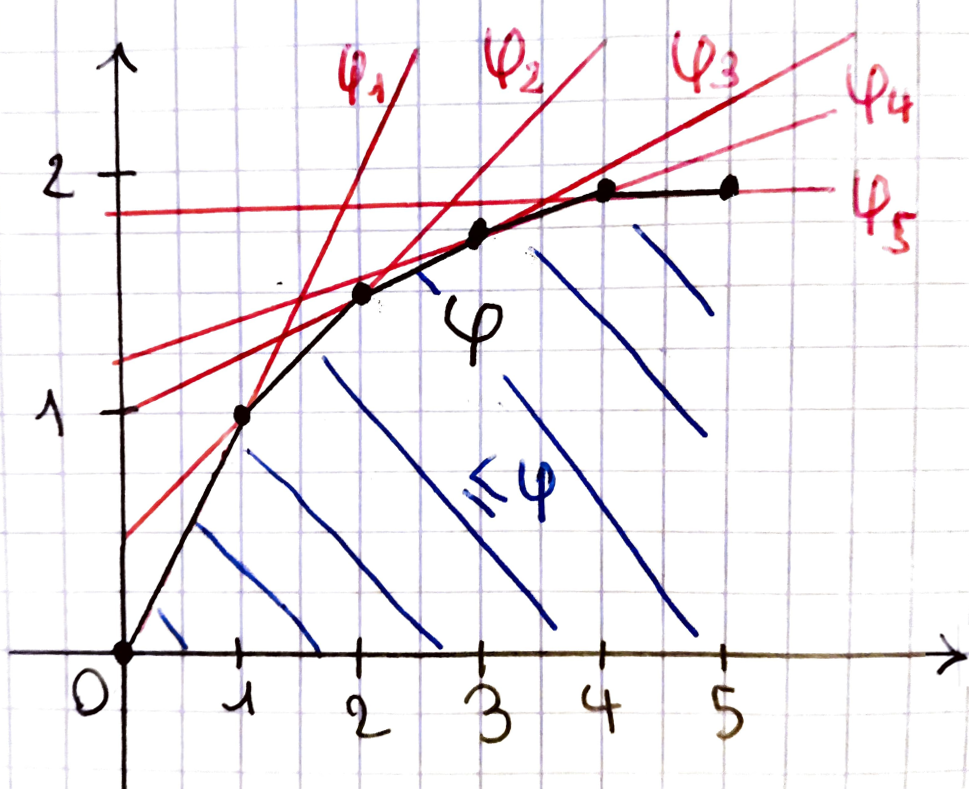 φ1 φ2 φ3 φ4
2 φ5
φ
1
≤ φ
0 1 2 3 4 5